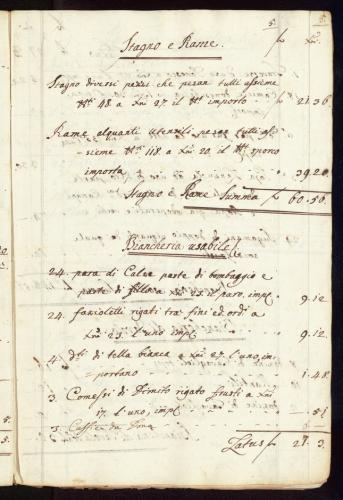 5.
Stagno e Rame. f xni.
Stagno diversi pezzi che pesan tutti assieme
48 a xni 27 il importo 21.36
Rame alquanti utensili pesan tutti as-
sieme 118 a xni 20 il sporco
importa 39.20
Stagno e Rame Summa f 60.56
Biancheria usabile
24. para di Calze parte di bombaggio e
parte di filo a xni 23 il paro, imp. 9.12
24. fazioletti rigati tra fini ed ordi a
xni 23. l'uno imp. 9.12
4. di tella bianca a xni 27 l'uno, im-
portano 1.48
3. Comessi di Dimito rigato frusti a xni
17. l'uno, imp. 51
3.
Latus f 21 3